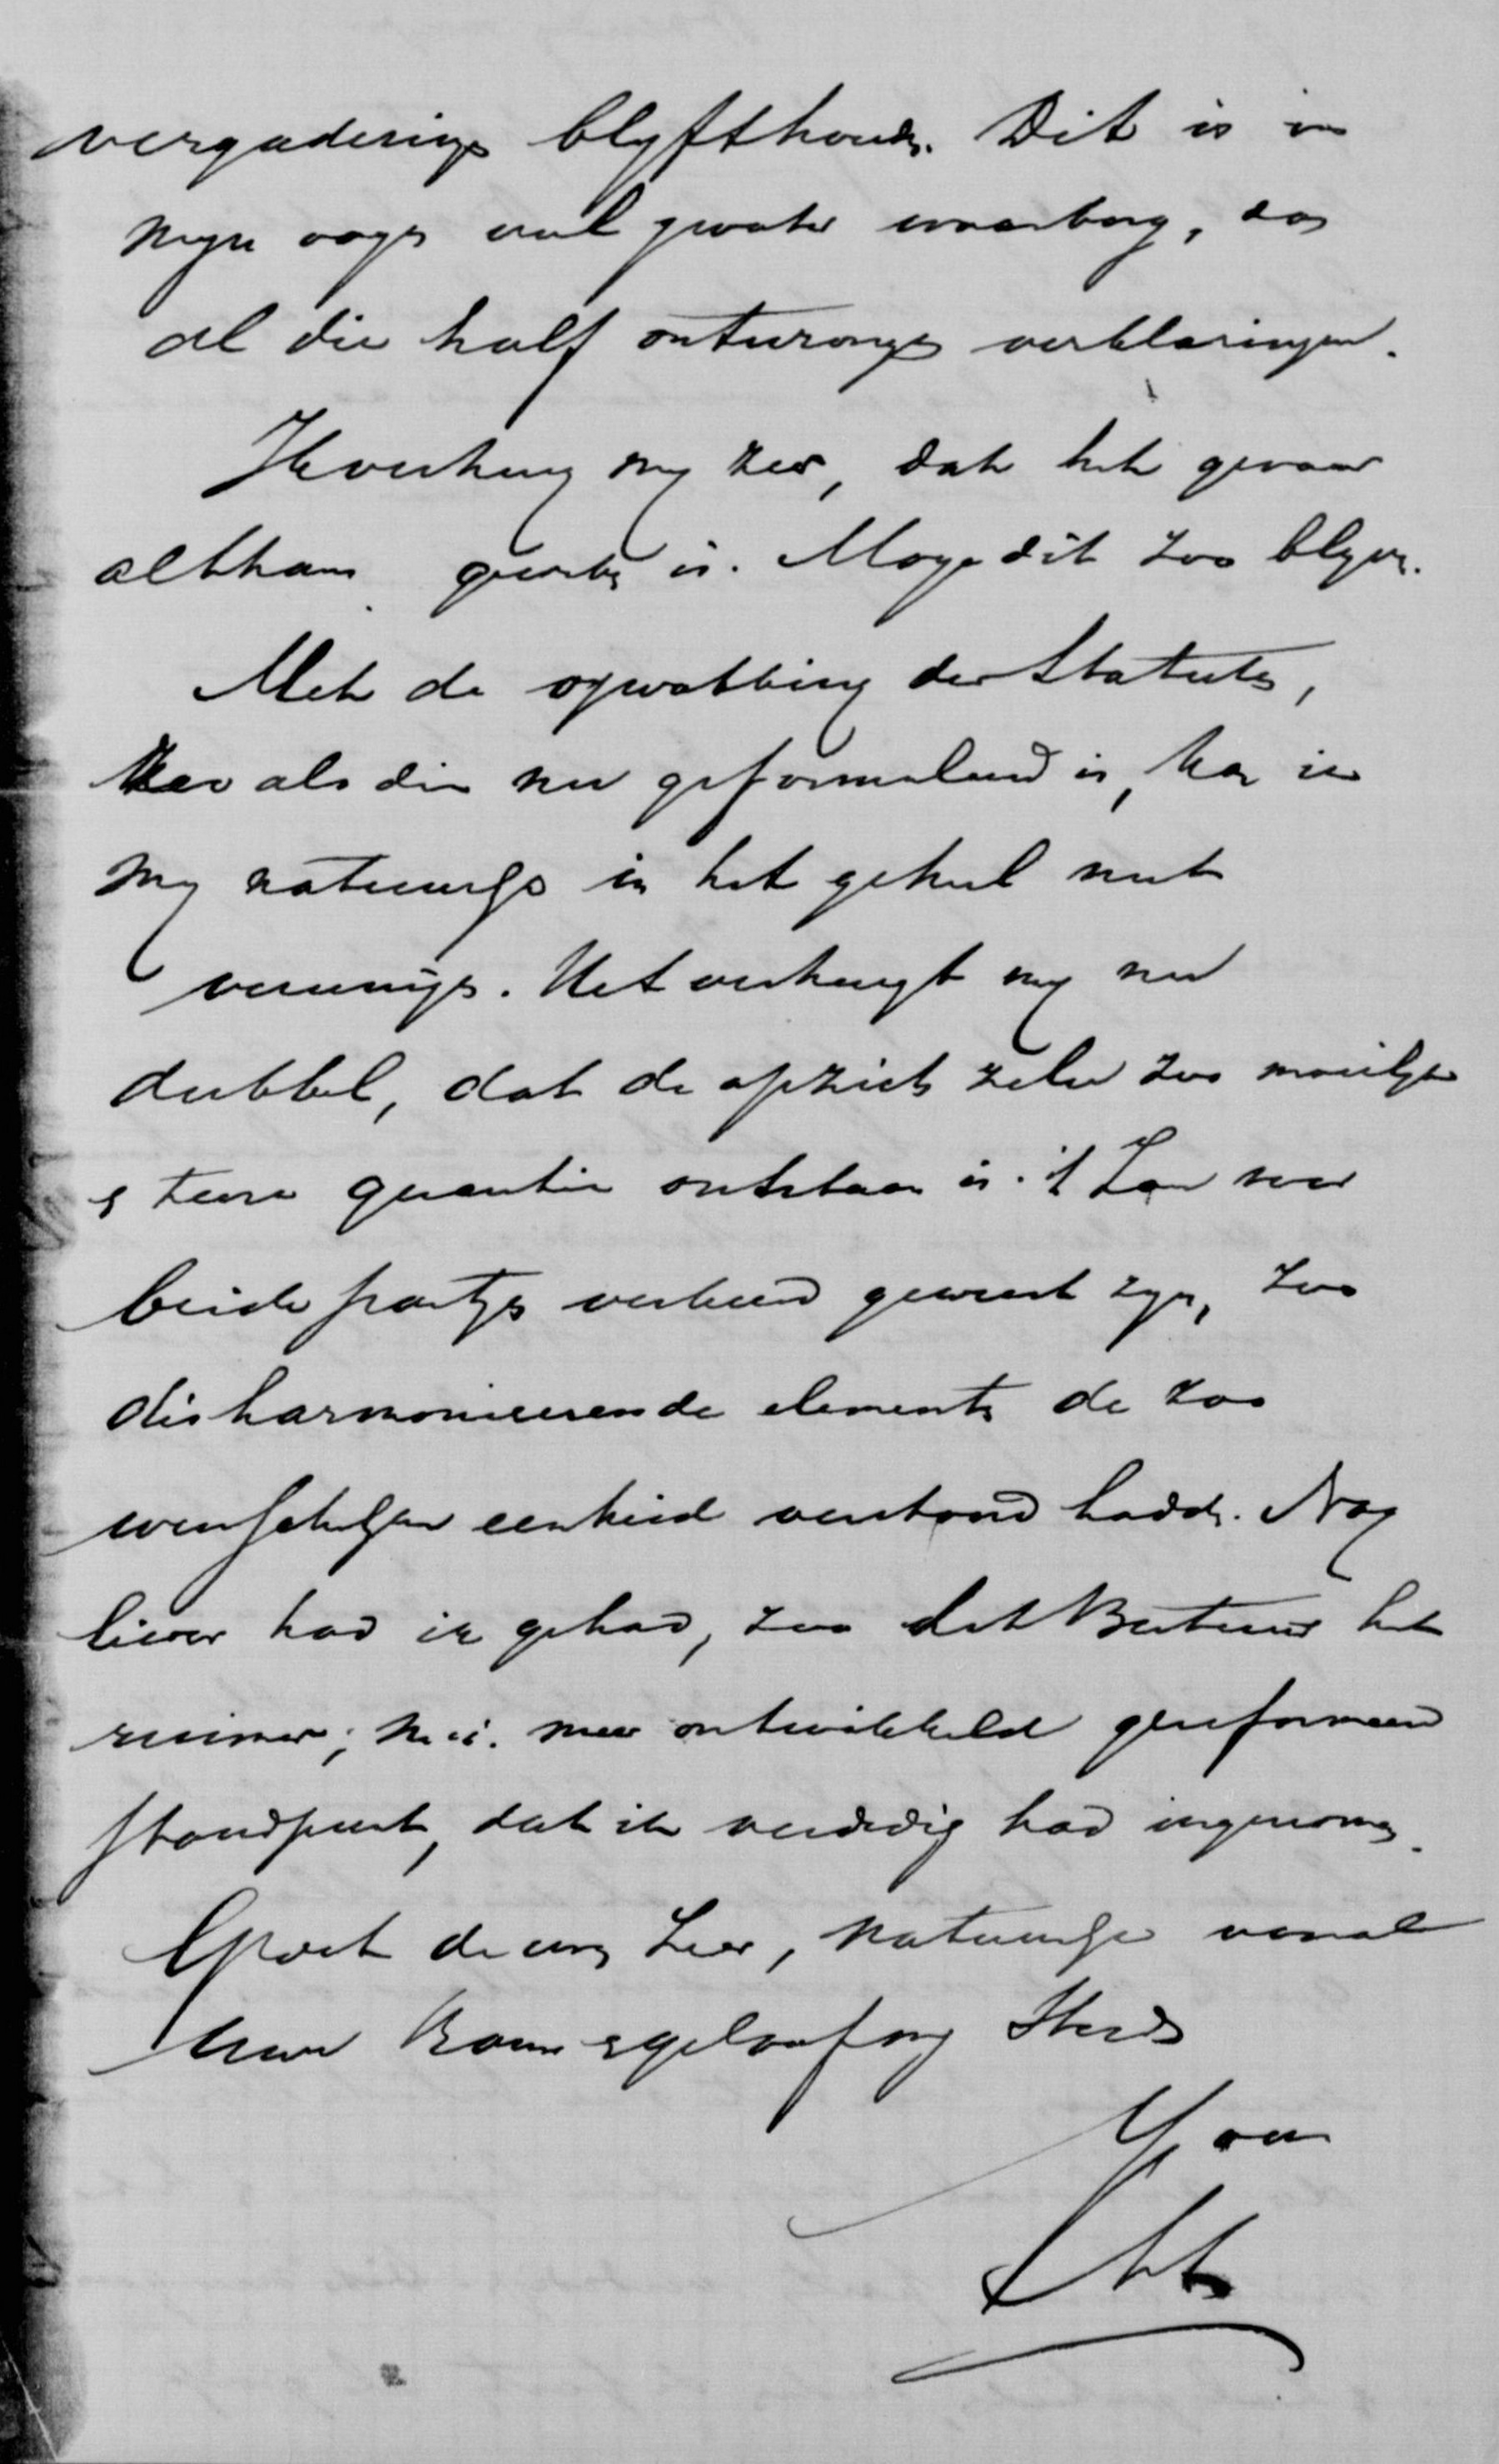 vergaderingen blyft houden. Dit is in
myn oogen veel grooter waarborg, dan
al die half ontwrongen verklaringen.
Ik verheug my zeer, dat het gevaar
althans geweken is. Moge dit zoo blyven.
Met de opvatting der Statuten,
zoo als die nu geformuleerd is, kan ik
my natuurlyk in het geheel niet
vereenigen. Het verheugt my nu
dubbel, dat de opzich zelve zoo moeilyke
en teere quaestie ontstaan is. 't Zou voor
beide partyen verkeerd geweest zyn, zoo
disharmonieerende elementen de zoo
wenschelyke eenheid verstoord hadden. Nog
liever had ik gehad, zoo het Bestuur het
ruimer, m.i. meer ontwikkeld gereformeerd
standpunt, dat ik verdedig had ingenomen.
Groet de uwen zeer, natuurlyk vooral
Uwe Vrouw en geloof my Steeds